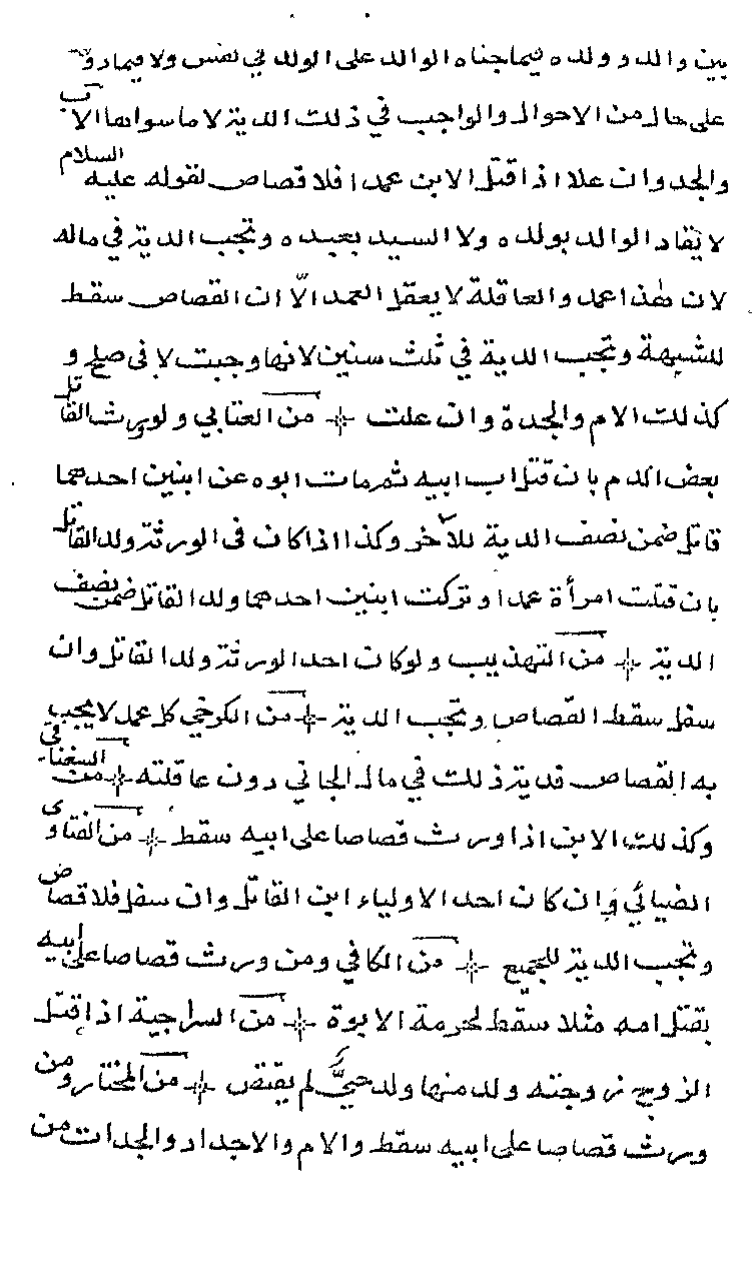 بين والد وولده فيما جناه الوالد على الولد في نفس ولا فيما دونه
على حال من الاحوال والواجب في ذلك الدية لا ما سواها الاب
والجد وان علا اذا قتل الابن عمدا فلا قصاص لقوله عليه السلام
لا يقاد الوالد بولده ولا السيد بعبده وتجب الدية في ماله
لان هذا عمد والعاقلة لا يعقل العمد الّا ان القصاص سقط
للشبهة وتجب الدية في ثلث سنين لانها وجبت لا في صلح و
كذلك الام والجدة وان علت من العتابي ولو يرث القاتل
بعض الدم بان قتل اب ابيه ثم مات ابوه عن ابنين احدهما
قاتل ضمن نصف الدية للآخر وكذا اذا كان في الورثة ولد القاتل
بان قتلت امرأة عمدا وتركت ابنين احدهما ولد القاتل ضمن نصف
الدية من التهذيب ولو كان احد الورثة ولد القاتل وان
سفل سقط القصاص وتجب الدية من الكرخي كل عمد لا يجب
به القصاص فدية ذلك في مال الجاني دون عاقلته من السغناقي
وكذلك الابن اذا ورث قصاصا على ابيه سقط من الفتاوى
الضيائي وان كان احد الاولياء ابن القاتل وان سفل فلا قصاص
وتجب الدية للجميع من الكافي ومن ورث قصاصا على ابيه
بقتل امه مثلا سقط لحرمة الابوة من السراجية اذا قتل
الزوج زوجته ولد منها ولد حيٌّ لم يقتص من المختار ومن
ورث قصاصا على ابيه سقط والام والاجداد والجدات من